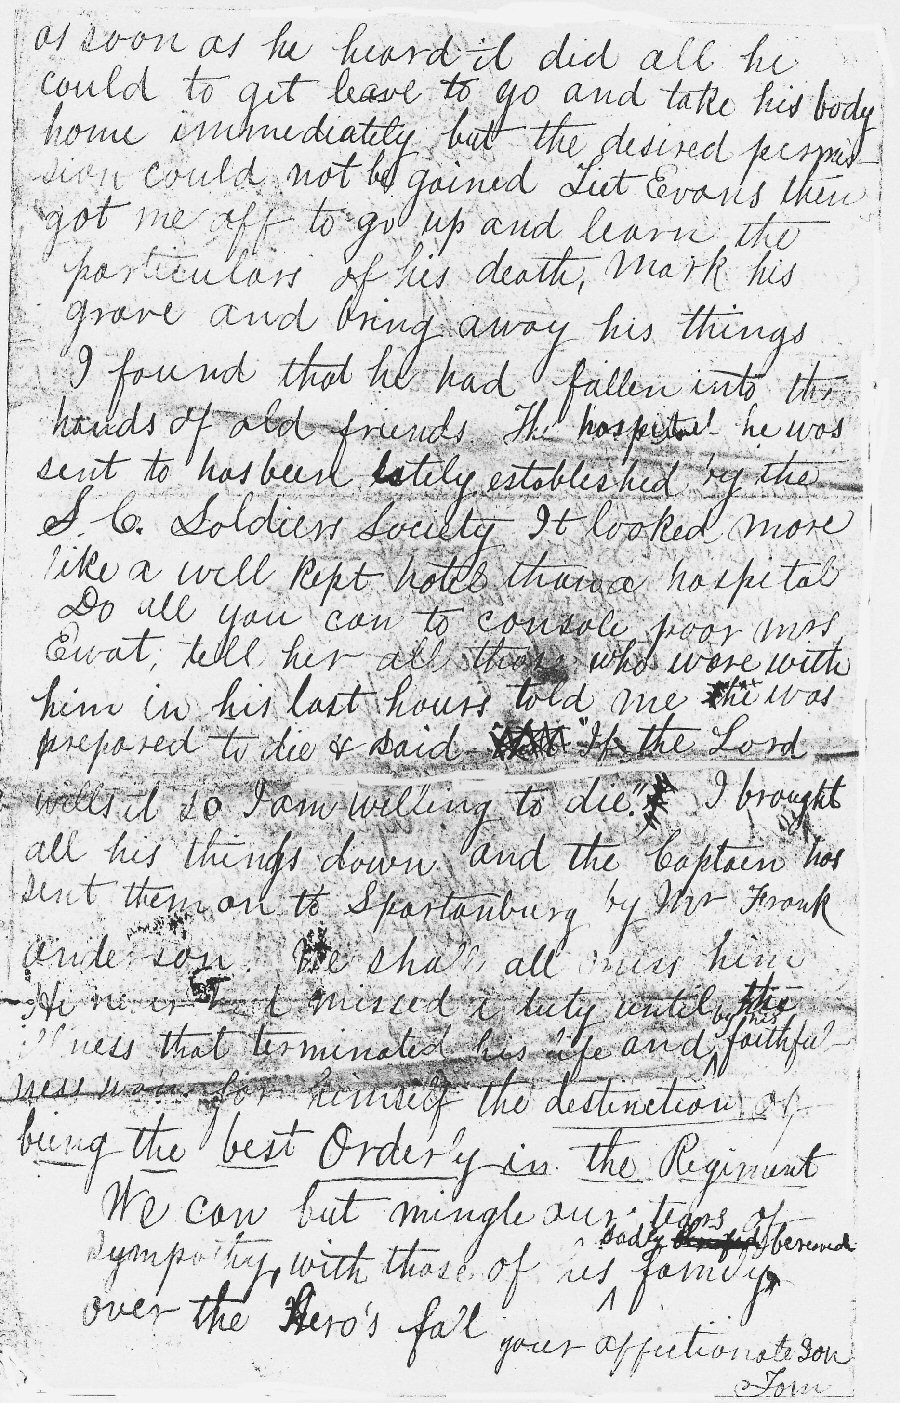 as soon as he heard it did all he
could to get leave to go and take his body
home immediately but the desired permis-
sion could not be gained Liet Evans then
got me off to go up and learn the
particulars of his death, Mark his
grave and bring away his things
I found that he had fallen into the
hands of old friends. The hospital he was
sent to has been lately established by the
S. C. Soldiers Society It looked more
like a well kept hotel than a hospital
Do all you can to console poor Mrs
Ewat, tell her all those who were with
him in his last hours told me he was
prepared to die & said "If the Lord
wills it so I am willing to die." I brought
all his things down and the Captain has
sent them on to Spartanburg by Mr Frank
Anderson. We shall all miss him
He never missed a duty until the
illness that terminated his life and by his faithful-
ness won for himself the destinction of
being the best Orderly in the Regiment
We can but mingle our tears of
sympathy, with those of his sadly bereaved family,
over the Hero's fall
your affectionate son
Tom